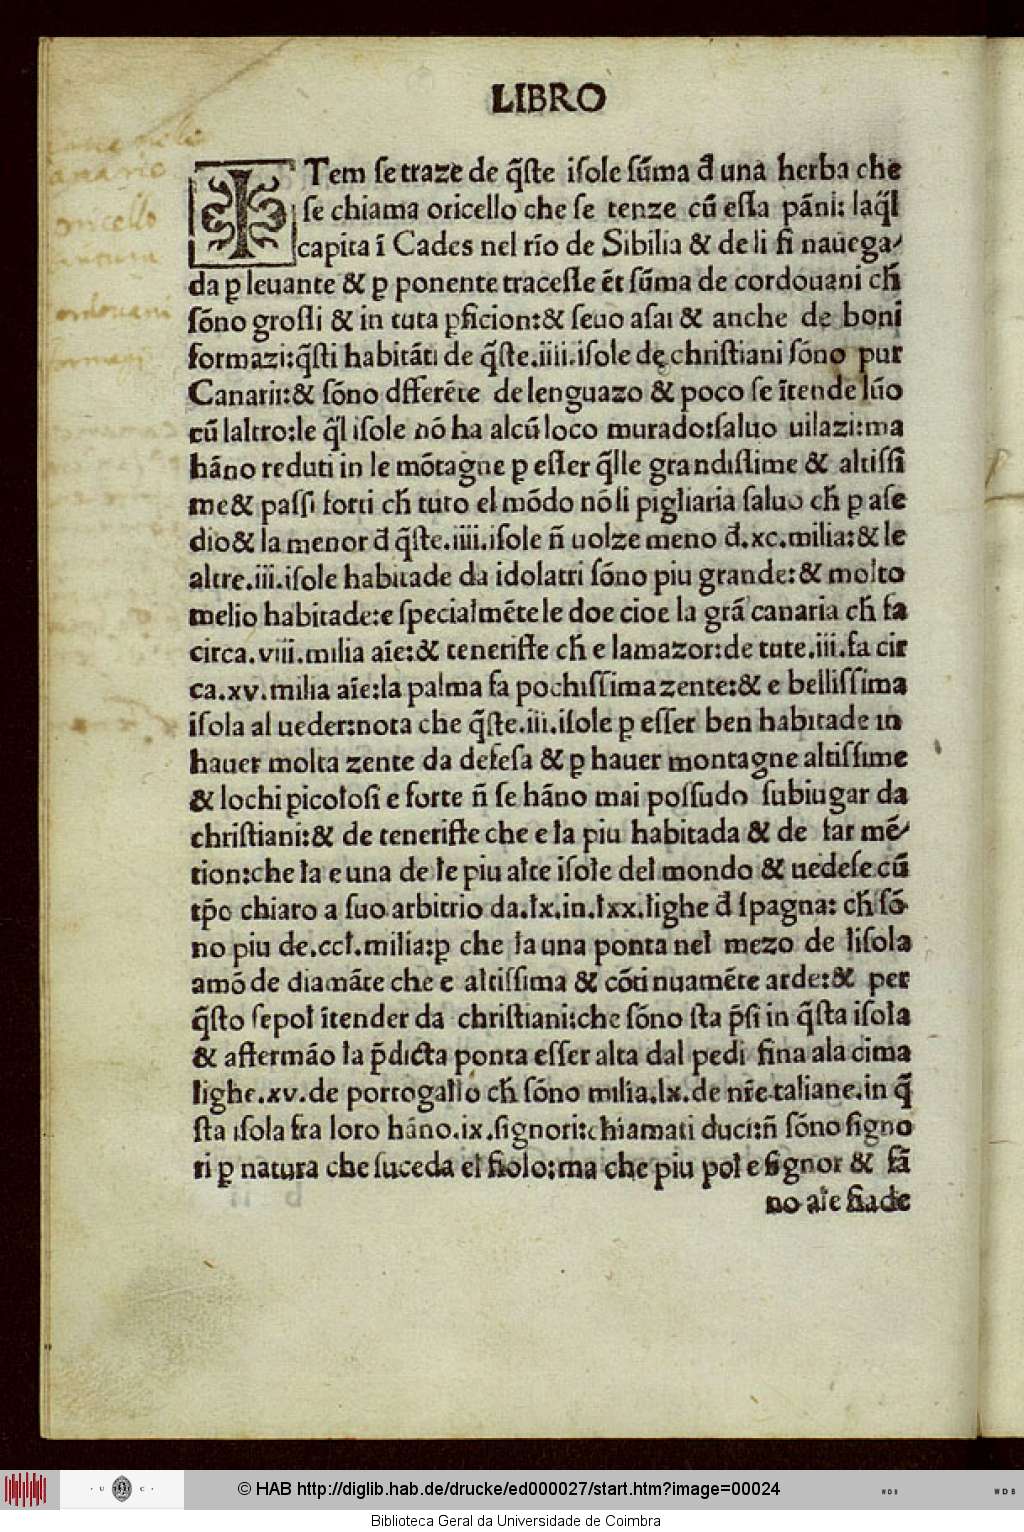 LIBRO
ITem se traze de q̃ste isole sũma đ una herba che
se chiama oricello che se tenze cũ essa pãni: laq̃l
capita ĩ Cades nel rĩo de Sibilia & de li si nauega-
da ꝑ leuante & ꝑ ponente tracesse ẽt sũma de cordouani cħ
sõno grossi & in tuta ꝑficion:& seuo asai & anche de boni
formazi:q̃sti habitãti de q̃ste.iiii.isole dę christiani sõno pur
Canarii:& sõno dfferẽte de lenguazo & poco se ĩtende lũo
cũ laltro:le q̃l isole nõ ha alcũ loco murado:saluo uilazi:ma
hãno reduti in le mõtagne ꝑ esser q̃lle grandissime & altissi
me & passi forti cħ tuto el mõdo nõ li pigliaria saluo cħ ꝑ ase
dio & la menor đ q̃ste.iiii.isole ñ uolze meno đ.xc.milia:& le
altre.iii.isole habitade da idolatri sõno piu grande:& molto
melio habitade:e specialmẽte le doe cioe la grã canaria cħ fa
circa.viii.milia aĩe:& teneriffe cħ e lamazor:de tute.iii.fa cir
ca.xv.milia aĩe:la palma fa pochissima zente:& e bellissima
isola al ueder:nota che q̃ste.iii.isole ꝑ esser ben habitade in
hauer molta zente da defesa & ꝑ hauer montagne altissime
& lochi picolosi e forte ñ se hãno mai possudo subiugar da
christiani:& de teneriffe che e la piu habitada & de far mẽ-
tion:che la e una de le piu alte isole del mondo & uedese cũ
tp̃o chiaro a suo arbitrio da.lx.in.lxx.lighe đ spagna: cħ sõ-
no piu de.ccl.milia:ꝑ che la una ponta nel mezo de lisola
amõ de diamãte che e altissima & cõti nuamẽte arde:& per
q̃sto sepol ĩtender da christiani:che sõno sta p̃si in q̃sta isola
& affermão la p̃dicta ponta esser alta dal pedi fina ala cima
lighe.xv.de portogallo cħ sõno milia.lx.de nr̃e taliane.in q̃
sta isola fra loro hãno.ix.signori:chiamati duci:ñ sõno signo
ri ꝑ natura che suceda el fiolo:ma che piu pol e signor & fã
no aĩe fiade
© HAB http://diglib.hab.de/drucke/ed000027/start.htm?image=00024
Biblioteca Geral da Universidade de Coimbra